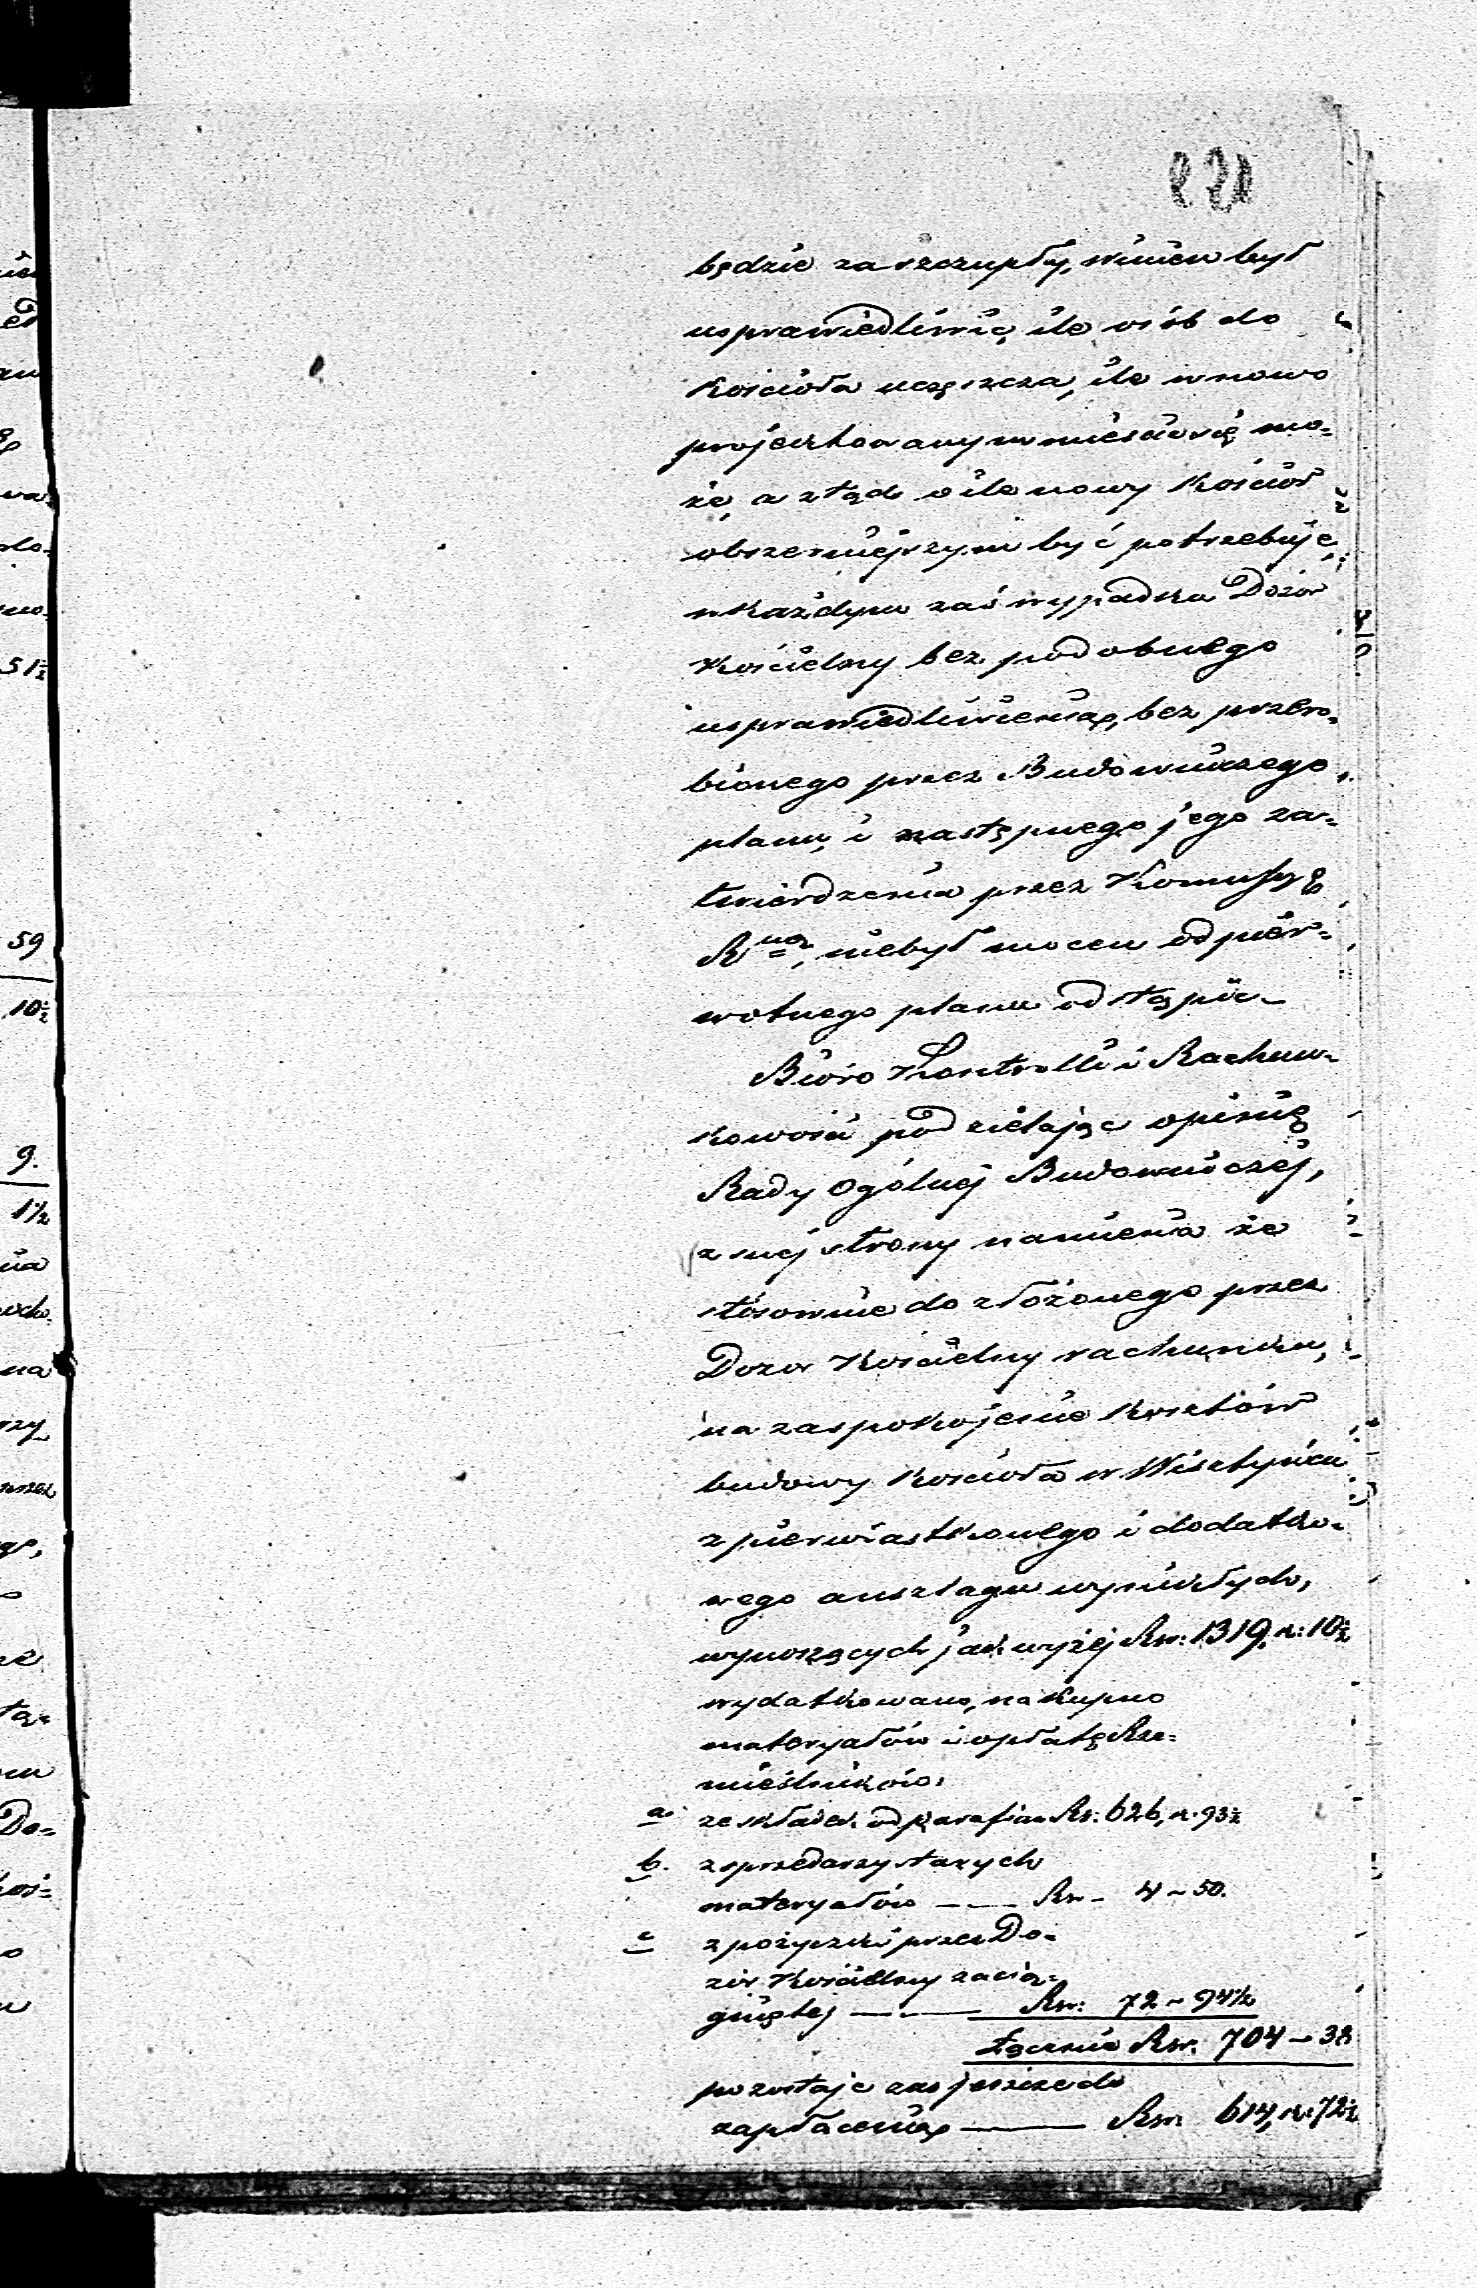 220
będzie za szczupły, winien był
usprawiedliwić ile osób do
Kościoła uczęszcza, ile w nowo
projecktowanym mieścić się mo=
że, a ztąd o ile nowy Kościoł
obszerniejszym być potrzebuje,
w każdym zaś wypadku Dozór
Kościelny bez podobnego
usprawiedliwienia, bez przero=
bionego przez Budowniczego
planu, i następnego jego za=
twierdzenia przez Kommissyę
R ną, niebył mocen od pier=
wotnego planu odstąpić.
Bióro Kontrolli i Rachun=
kowości podzielając opinią
Rady Ogólnej Budowniczej,
z swej strony namienia że
stósownie do złożonego przez
Dozor Kościelny rachunku,
na zaspokojenie kosztów
budowy Kościoła w Wisztyńcu
z pierwiastkowego i dodatko=
wego anszlagu wynikłych,
wynoszących jak wyżej Rsr: 1319, k: 10½
wydatkowano, na kupno
materyałów i opłatę Rze=
mieślników,
a. ze składek od parafian Rs: 626, k. 93½
b. z sprzedarzy starych
materyałów — — Rsr — 4 — 50.
c z pożyczki przez Do=
zór Kościelny zacią=
gniętej — — Rsr: 72 — 94½
Łącznie Rsr. 704 — 38
pozostaje zas jeszcze do
zapłacenia — Rsr 614, k: 72½
59
10½
9.
1½
51½